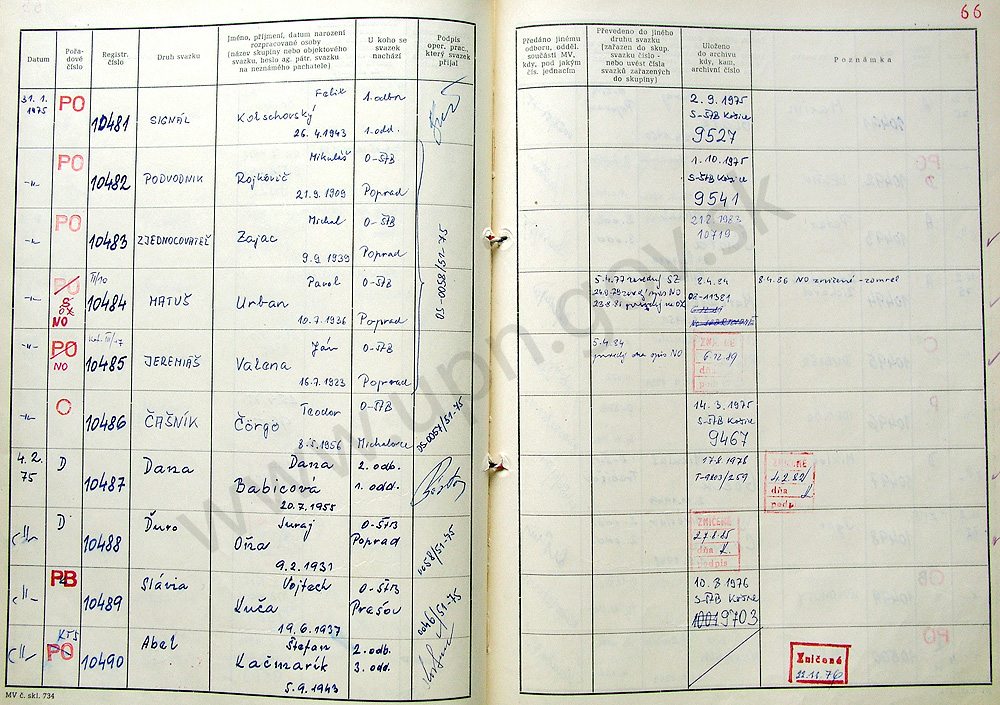 66
Datum
Pořa-
dové
číslo
Registr.
číslo
Druh svazku
Jméno, příjmení, datum narození
rozpracované osoby
(název skupiny nebo objektového
svazku, heslo ag. pátr. svazku
na neznámého pachatele)
U koho se
svazek
nachází
Podpis
oper. prac.,
který svazek
přijal
Předáno jinému
odboru, odděl.
součásti MV,
kdy, pod jakým
čís. jednacím
Převedeno do jiného
druhu svazku
(zařazen do skup.
svazku číslo -
nebo uvést čísla
svazků zařazených
do skupiny)
Uloženo
do archivu
kdy, kam,
archivní číslo
Poznámka
31. 1.
1975
PO
10481
SIGNÁL
Felix
Kolschovský
26. 4. 1943
1. odbor
1. odd.
2. 9. 1975
S-ŠtB Košice
9527
-"-
PO
10482
PODVODNIK
Mikuláš
Rojkovič
21. 9. 1909
O-ŠtB
Poprad
1. 10. 1975
S-ŠtB Košice
9541
-"-
PO
10483
ZJEDNOCOVATEĽ
Michal
Zajac
9. 9. 1939
O-ŠtB
Poprad
OS-0058/51-75
10719
-"-
PO
NO
III/10
10484
MATUŠ
Pavol
Urban
10. 7. 1936
O-ŠtB
Poprad
5. 4. 77
8. 4. 84
8. 4. 86 NO zrušené - zomrel
-"-
PO
NO
10485
JEREMIÁŠ
Ján
Valena
16. 7. 1923
O-ŠtB
Poprad
5. 4. 84
6. 12. 89
-"-
C
10486
ČAŠNÍK
Teodor
Čorgo
8. 5. 1956
O-ŠtB
Michalovce
OS-0057/51-75
14. 3. 1975
S-ŠtB Košice
9467
4. 2.
75
D
10487
Dana
Dana
Babicová
20. 7. 1955
2. odb.
1. odd.
17. 8. 1976
T-1803/259
-"-
D
10488
Ďuro
Juraj
Oľša
9. 2. 1931
O-ŠtB
Poprad
0058/51-75
ZNIČENÉ
27. 8. 85
dňa
podpis
-"-
PB
10489
Slávia
Vojtech
Kuča
19. 6. 1937
O-ŠtB
Prešov
0046/51-75
10. 8. 1976
S-ŠtB Košice
9703
-"-
KTS
PO
10490
Abel
Štefan
Kačmarik
5. 9. 1943
2. odb.
3. odd.
Zničené
22. 11. 76
MV č. skl. 734
www.upn.gov.sk